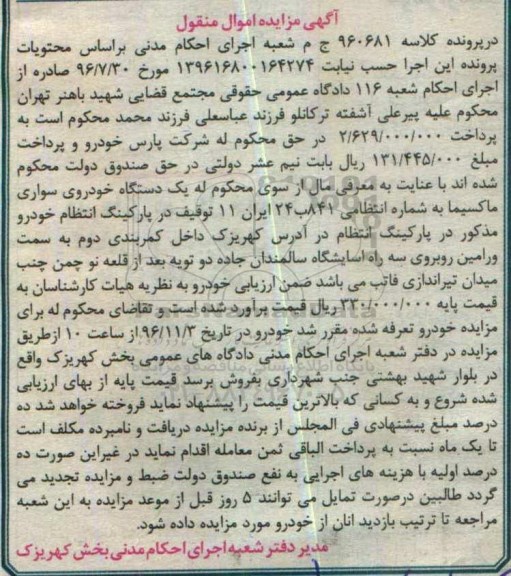 آگهی مزایده اموال منقول
درپرونده کلاسه ۹۶۰۶۸۱ ج م شعبه اجرای احکام مدنی براساس محتویات
پرونده این اجرا حسب نیابت ۱۳۹۶۱۶۸۰۰۱۶۴۲۷۴ مورخ ۹۶/۷/۳۰ صادره از
اجرای احکام شعبه ۱۱۶ دادگاه عمومی حقوقی مجتمع قضایی شهید باهنر تهران
محکوم علیه پیرعلی آشفته ترکانلو فرزند عباسعلی فرزند محمد محکوم است به
پرداخت ۲/۶۲۹/۰۰۰/۰۰۰ در حق محکوم له شرکت پارس خودرو و پرداخت
مبلغ ۱۳۱/۴۴۵/۰۰۰ ریال بابت نیم عشر دولتی در حق صندوق دولت محکوم
شده اند با عنایت به معرفی مال از سوی محکوم له یک دستگاه خودروی سواری
ماکسیما به شماره انتظامی ۸۴۱ب۲۴ ایران ۱۱ توقیف در پارکینگ انتظام خودرو
مذکور در پارکینگ انتظام در آدرس کهریزک داخل کمربندی دوم به سمت
ورامین روبروی سه راه آسایشگاه سالمندان جاده دو تویه بعد از قلعه نو چمن چنب
میدان تیراندازی فاتب می باشد ضمن ارزیابی خودرو به نظریه هیات کارشناسان به
قیمت پایه ۳۳۰/۰۰۰/۰۰۰ ریال قیمت برآورد شده است و تقاضای محکوم له برای
مزایده خودرو تعرفه شده مقرر شد خودرو در تاریخ ۹۶/۱۱/۳ از ساعت ۱۰ ازطریق
مزایده در دفتر شعبه اجرای احکام مدنی دادگاه های عمومی بخش کهریزک واقع
در بلوار شهید بهشتی جنب شهرداری بفروش برسد قیمت پایه از بهای ارزیابی
شده شروع و به کسانی که بالاترین قیمت را پیشنهاد نماید فروخته خواهد شد ده
درصد مبلغ پیشنهادی فی المجلس از برنده مزایده دریافت و نامبرده مکلف است
تا یک ماه نسبت به پرداخت الباقی ثمن معامله اقدام نماید در غیراین صورت ده
درصد اولیه با هزینه های اجرایی به نفع صندوق دولت ضبط و مزایده تجدید می
گردد طالبین درصورت تمایل می توانند ۵ روز قبل از موعد مزایده به این شعبه
مراجعه تا ترتیب بازدید انان از خودرو مورد مزایده داده شود.
مدیر دفتر شعبه اجرای احکام مدنی بخش کهریزک